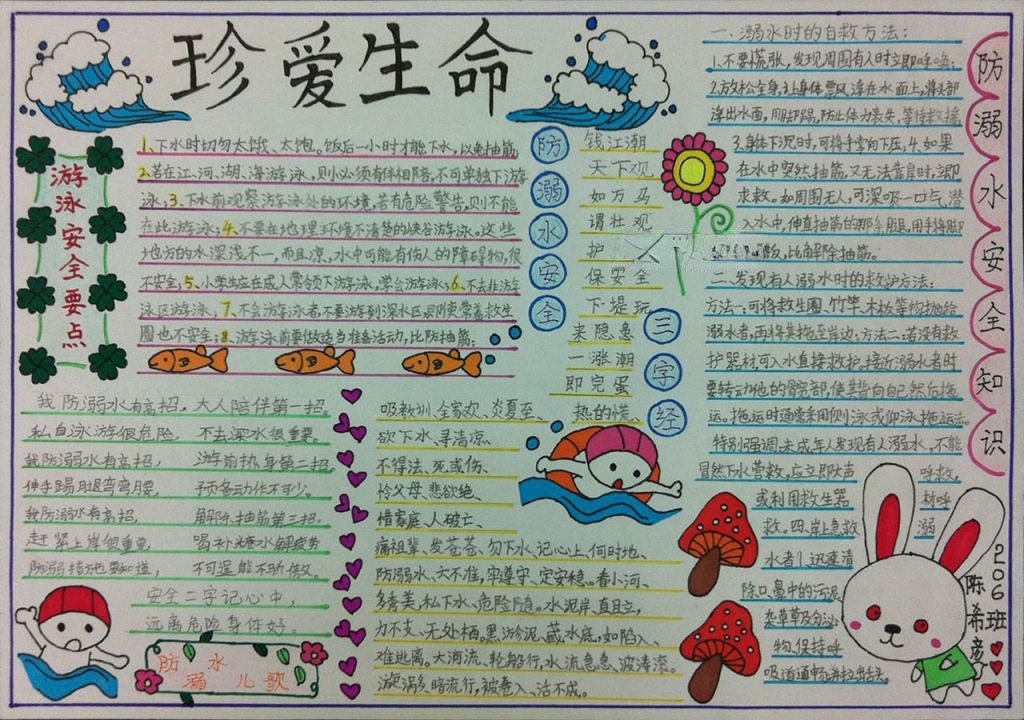 珍爱生命
游泳安全要点
1、下水时切勿太饿、太饱。饭后一小时才能下水,以免抽筋
2、若在江、河、湖、海游泳,则小必须有伴相陪,不可单独下游
泳;3、下水前观察游泳处的环境,若有危险警告,则不能
在此游泳;4、不要在地理环境不清楚的峡谷游泳。这些
地方的水深浅不一,而且凉,水中可能有伤人的障碍物,很
不安全;5、小学生应在成人带领下游泳,学会游泳;6、不去非游
泳区游泳;7、不会游泳者不要游到深水区,即使带着救生
圈也不安全;8、游泳前要做适当准备活动,比防抽筋;
防溺水安全
三字经
钱江潮
天下观
如万马
谓壮观
护
保安全
下堤玩
来隐患
一涨潮
即完蛋
我防溺水有高招,大人陪伴第一招。
私自泳游很危险, 不去深水很重要。
我防溺水有高招, 游前热身第二招。
伸手踢腿弯弯腰, 预备动作不可少。
我防溺水有高招, 解除抽筋第三招。
赶紧上岸很重要, 喝补糖水解疲劳
防溺措施要知道,
安全二字记心中,
远离危险身体好。
防溺水儿歌
吸教训、全家欢、炎夏至、热的慌、
欲下水、寻清凉、
不得法、死或伤、
怜父母、悲欲绝、
惜家庭、人破亡、
痛祖辈、发苍苍、勿下水、记心上、何时地、
防溺水、六不准,牢遵守、定安稳。看小河、
多秀美,私下水、危险随。水泥岸,直且立,
力不支、无处栖。黑淤泥、藏水底,如陷入、
难逃离。大河流、轮船行,水流急、波涛滚。
漩涡多、暗流行,被卷入、活不成。
防溺水安全知识
一、溺水时的自救方法:
1.不要慌张,发现周围有人时立即呼喊;
2.放松全身,让身体飘浮在水面上,将头部
浮出水面,用脚踢,防止体力丧失,等待救援
3.身体下沉时,可将手掌向下压;4.如果
在水中突然抽筋,又无法靠岸时,立即
求救。如周围无人,可深吸一口气,潜
入水中,伸直抽筋的那条腿,用手将脚
扳,比解除抽筋。
二、发现有人溺水时的救护方法:
方法一:可将救生圈、竹竿、木板等物抛给
溺水者,再将其拖至岸边;方法二:若没有救
护器材,可入水直接救护。接近溺水者时
要转动他的髋部,使其背向自己然后拖
运。拖运时通常采用侧泳或仰泳拖运法
特别强调:未成年人发现有人溺水,不能
冒然下水营救,应立即大声呼救,
或利用救生器材呼
救。四、岸上急救溺
水者1、迅速清
除口、鼻中的污泥
杂草及分泌
物,保持呼
吸道通畅,并拉出舌头
206班
陈希彦